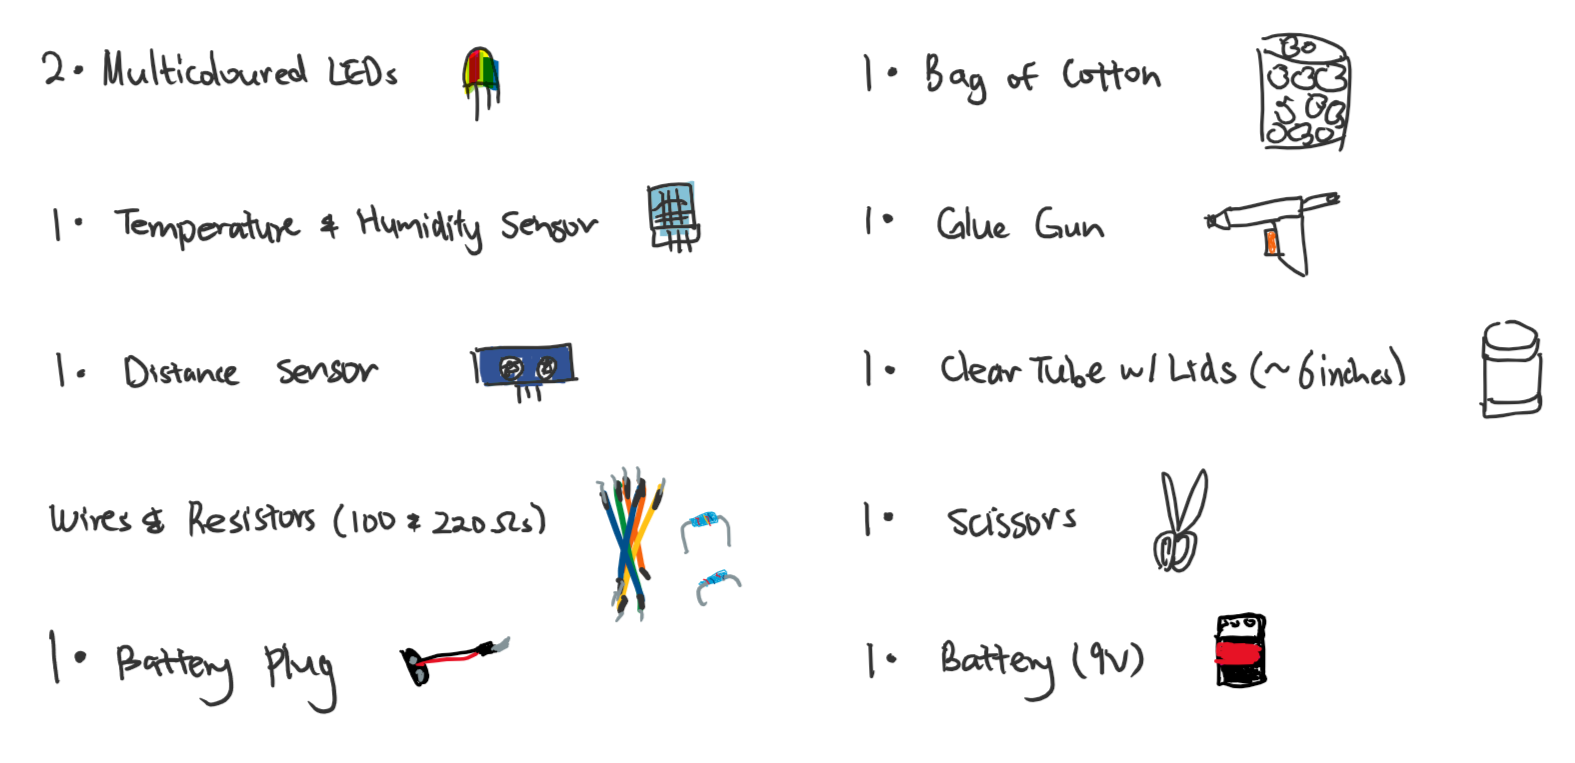 2. Multicoloured LEDs
1. Temperature & Humidity Sensor
1. Distance Sensor
Wires & Resistors (100 & 220 Ωs)
1. Battery Plug
1. Bag of Cotton
1. Glue Gun
1. Clear Tube w/ Lids (~6 inches)
1. Scissors
1. Battery (9V)